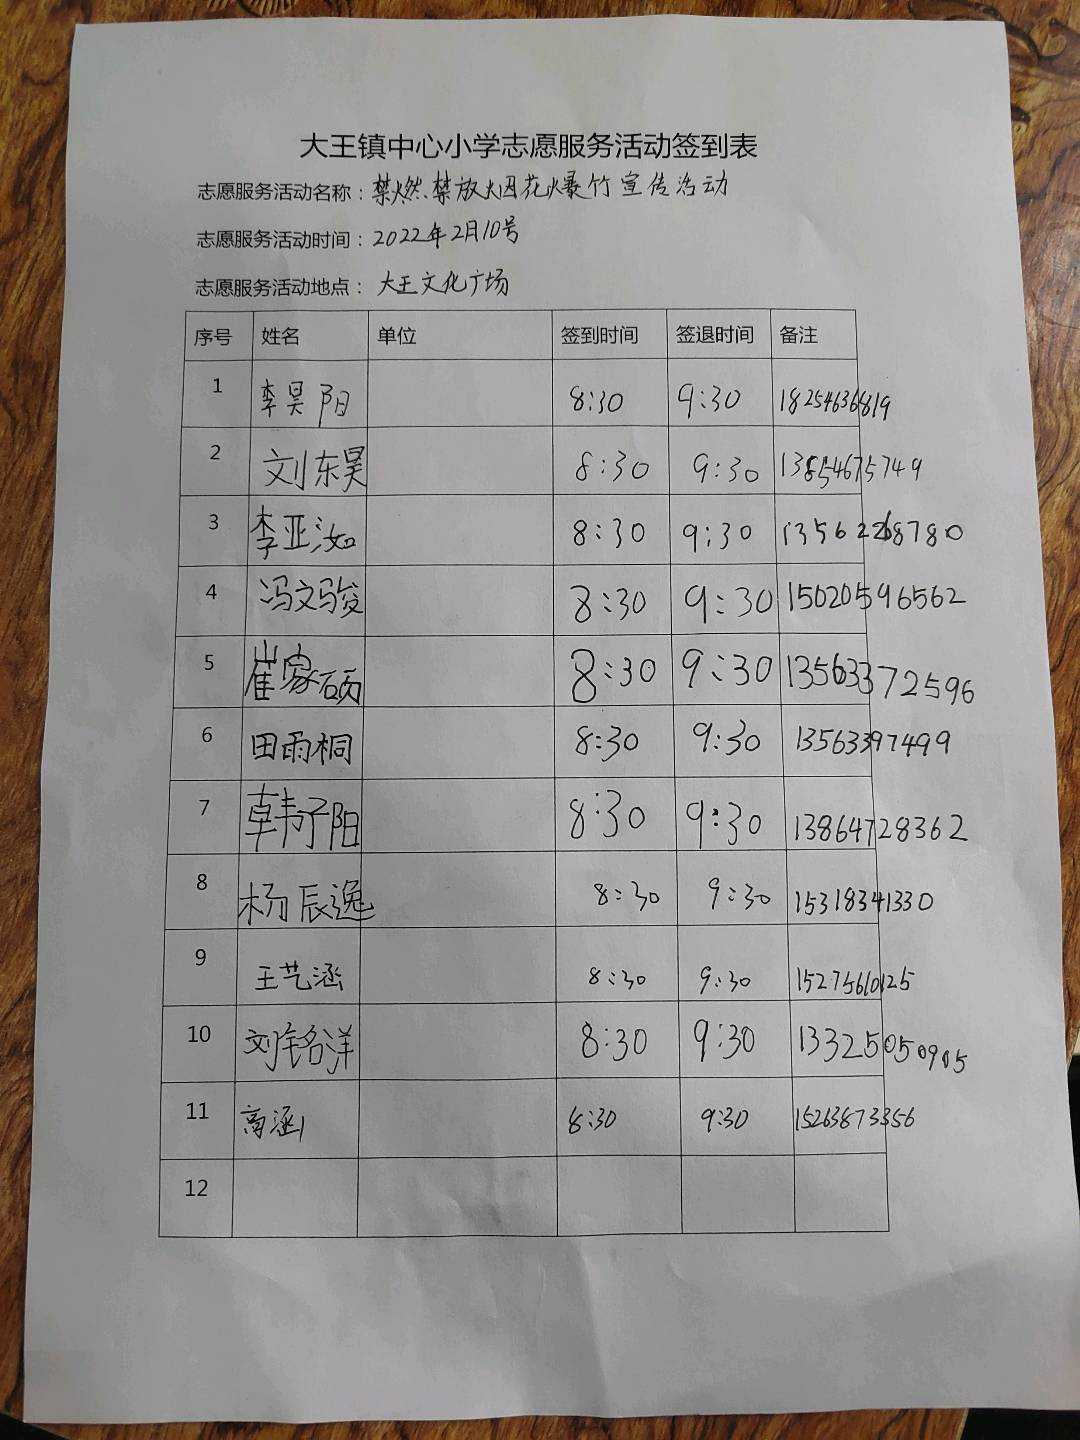 大王镇中心小学志愿服务活动签到表
志愿服务活动名称：禁燃禁放烟花爆竹宣传活动
志愿服务活动时间：2022年2月10号
志愿服务活动地点：大王文化广场
序号 姓名 单位 签到时间 签退时间 备注
1 李昊阳 8:30 9:30 18254636819
2 刘东昊 8:30 9:30 13854675749
3 李亚汝 8:30 9:30 13562268780
4 冯文骏 8:30 9:30 15020596562
5 崔家硕 8:30 9:30 13563372596
6 田雨桐 8:30 9:30 13563397499
7 韩子阳 8:30 9:30 13864728362
8 杨辰逸 8:30 9:30 15318341330
9 王艺涵 8:30 9:30 15275610125
10 刘铭洋 8:30 9:30 13325050905
11 高涵 8:30 9:30 15263873356
12